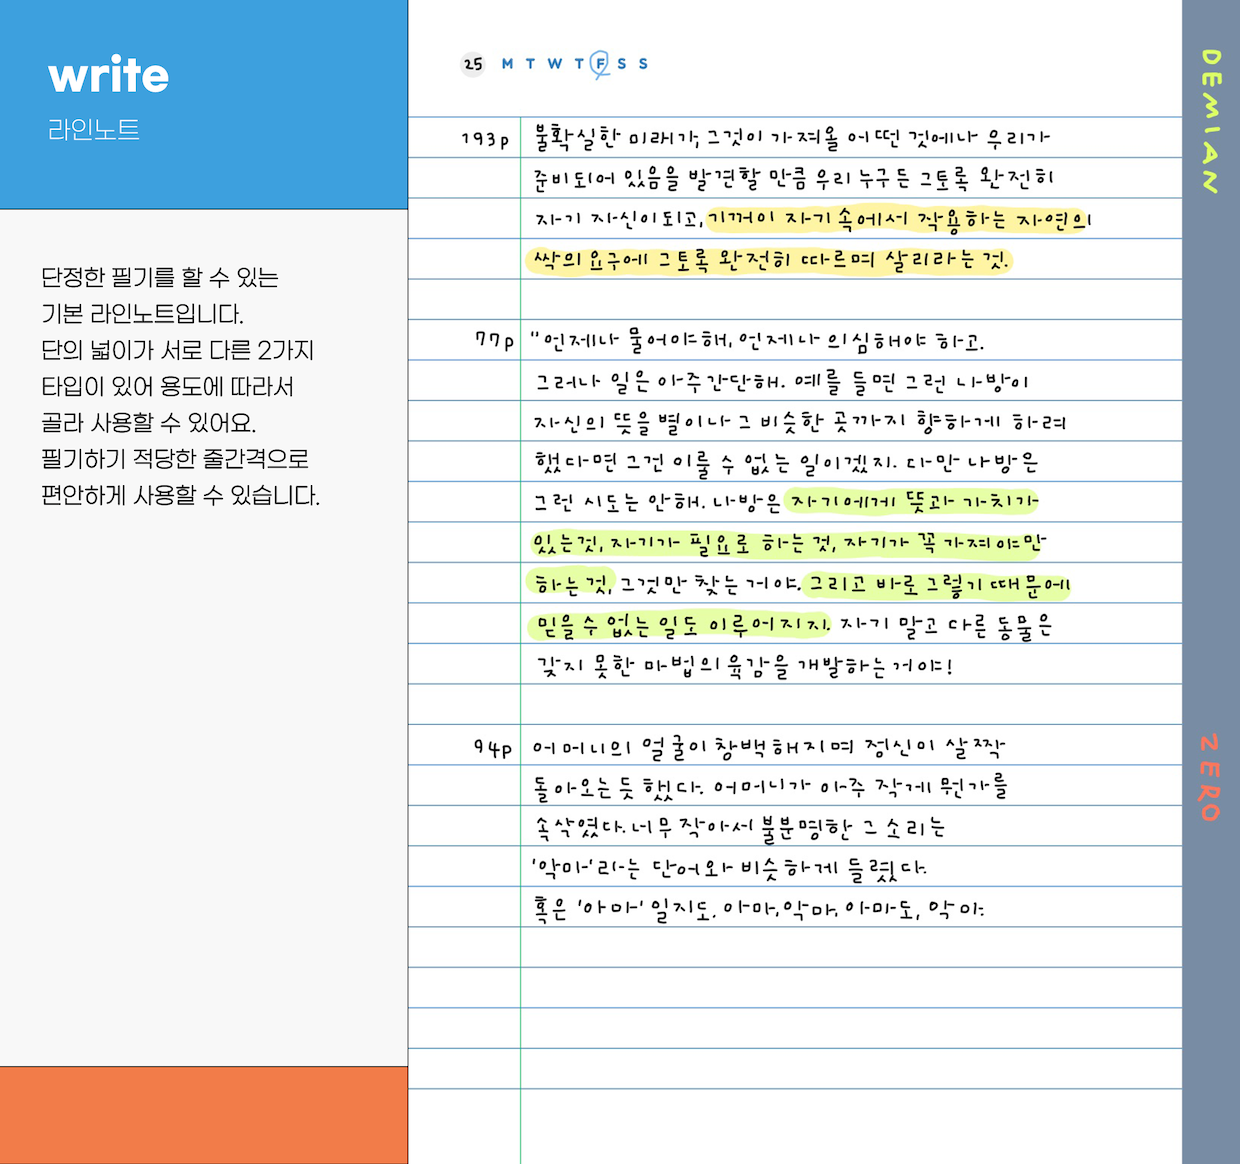 write
라인노트
단정한 필기를 할 수 있는
기본 라인노트입니다.
단의 넓이가 서로 다른 2가지
타입이 있어 용도에 따라서
골라 사용할 수 있어요.
필기하기 적당한 줄간격으로
편안하게 사용할 수 있습니다.
25 M T W T F S S
193p 불확실한 미래가, 그것이 가져올 어떤 것에나 우리가
준비되어 있음을 발견할 만큼 우리 누구든 그토록 완전히
자기 자신이 되고, 기꺼이 자기 속에서 작용하는 자연의
싹의 요구에 그토록 완전히 따르며 살리라는 것.
77p "언제나 물어야해, 언제나 의심해야 하고.
그러나 일은 아주 간단해. 예를 들면 그런 나방이
자신의 뜻을 별이나 그 비슷한 곳까지 향하게 하려
했다면 그건 이룰 수 없는 일이겠지. 다만 나방은
그런 시도는 안해. 나방은 자기에게 뜻과 가치가
있는 것, 자기가 필요로 하는 것, 자기가 꼭 가져야만
하는 것, 그것만 찾는 거야. 그리고 바로 그렇기 때문에
믿을 수 없는 일도 이루어지지. 자기 말고 다른 동물은
갖지 못한 마법의 육감을 개발하는 거야!
94p 어머니의 얼굴이 창백해지며 정신이 살짝
돌아오는 듯 했다. 어머니가 아주 작게 뭔가를
속삭였다. 너무 작아서 불분명한 그 소리는
'악마'라는 단어와 비슷하게 들렸다.
혹은 '아마' 일지도. 아마, 악마, 아마도, 악마.
DEMIAN
ZERO